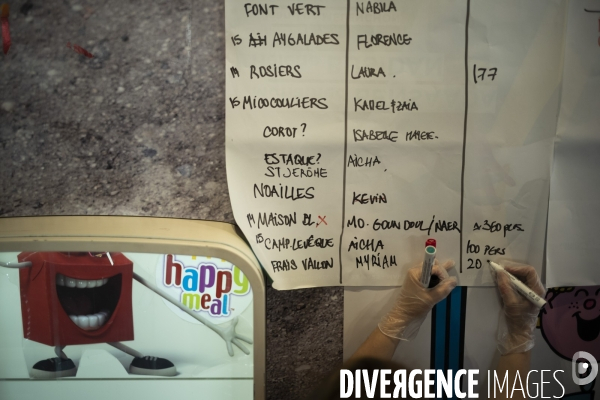 FONT VERT NABILA
15 AYGALADES FLORENCE
14 ROSIERS LAURA. 177
15 MICOCOULIERS KADEL & ZAIA
COROT? ISABELLE
ESTAQUE? AÏCHA
ST JERÔME
NOAILLES KEVIN
14 MAISON BL. X MO. GOUN DOUL/NAER 350 PERS
15 CAMP-LEVÊQUE AÏCHA 100 PERS
FRAIS VALLON MYRIAM 20
happy
meal
DIVERGENCE IMAGES